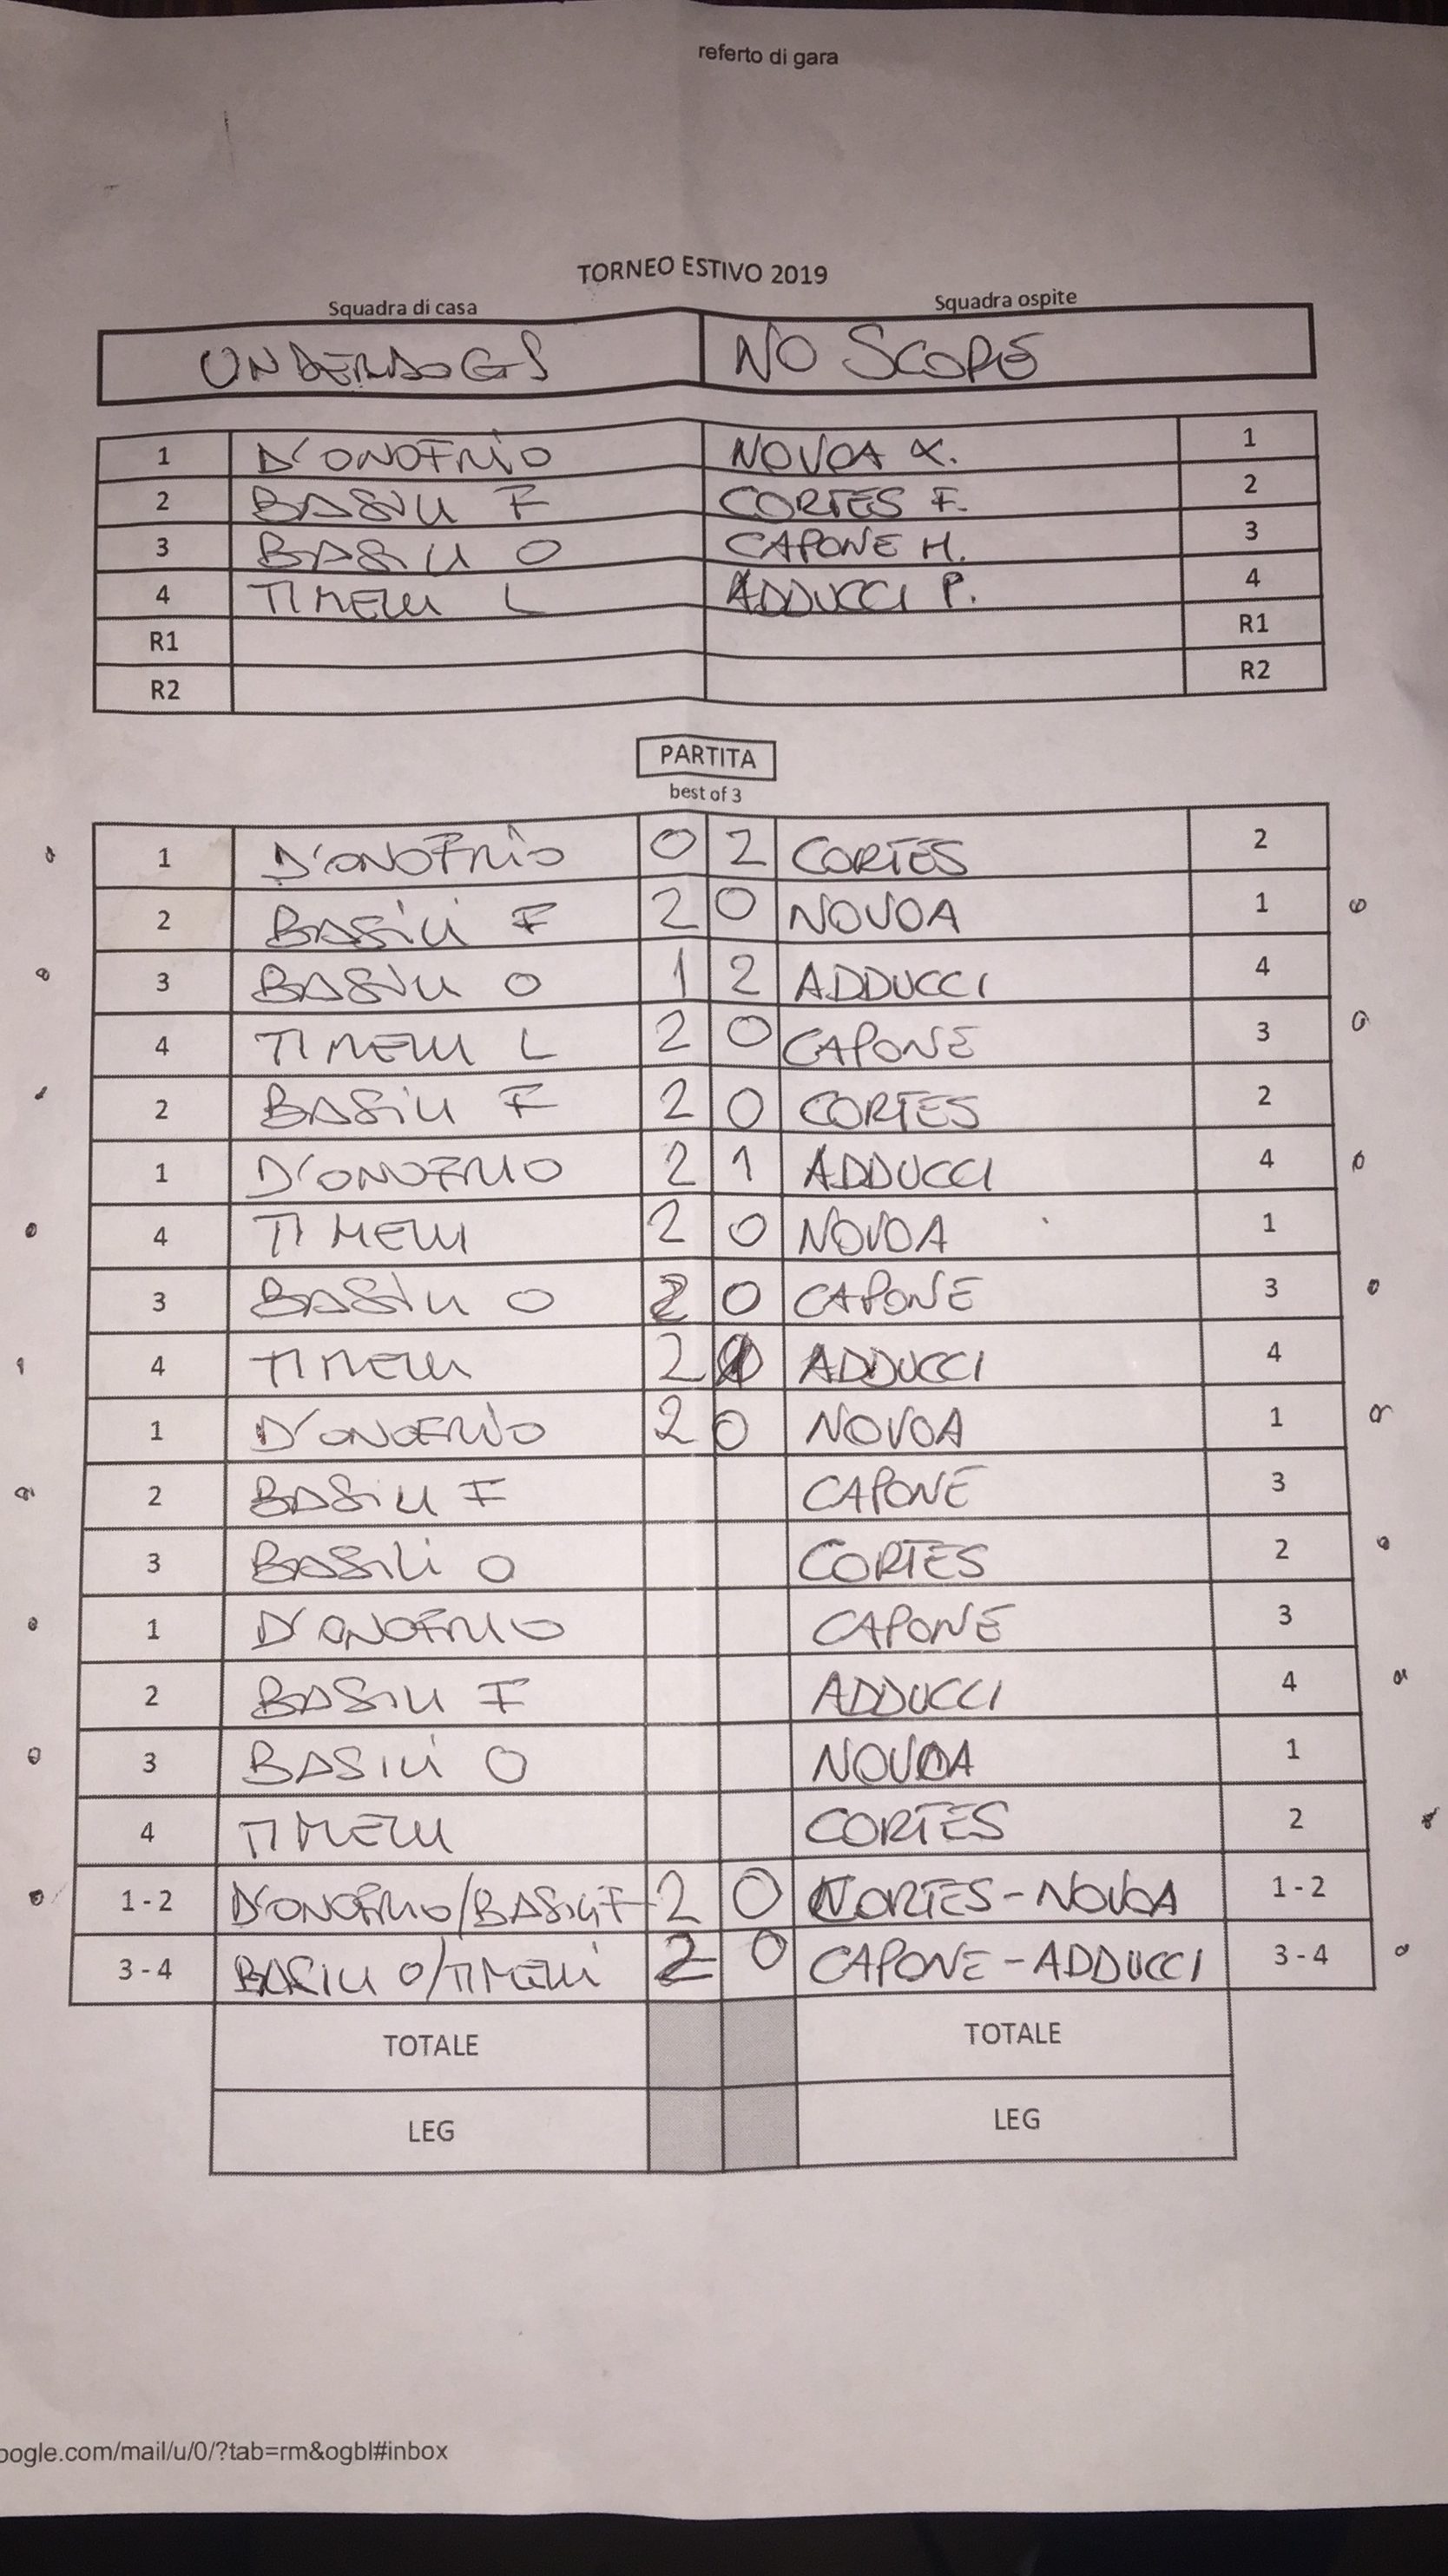 referto di gara
TORNEO ESTIVO 2019
Squadra di casa Squadra ospite
UNDERDOGS NO SCOPE
1 D'ONOFRIO NOVOA X. 1
2 BASILI F CORTES F. 2
3 BASILI O CAPONE H. 3
4 TIMELLI L ADDUCCI P. 4
R1 R1
R2 R2
PARTITA
best of 3
1 D'ONOFRIO 0 2 CORTES 2
2 BASILI F 2 0 NOVOA 1
3 BASILI O 1 2 ADDUCCI 4
4 TIMELLI L 2 0 CAPONE 3
2 BASILI F 2 0 CORTES 2
1 D'ONOFRIO 2 1 ADDUCCI 4
4 TIMELLI 2 0 NOVOA 1
3 BASILI O 2 0 CAPONE 3
4 TIMELLI 2 ADDUCCI 4
1 D'ONOFRIO 2 0 NOVOA 1
2 BASILI F CAPONE 3
3 BASILI O CORTES 2
1 D'ONOFRIO CAPONE 3
2 BASILI F ADDUCCI 4
3 BASILI O NOVOA 1
4 TIMELLI CORTES 2
1 - 2 D'ONOFRIO/BASILI F 2 0 CORTES - NOVOA 1 - 2
3 - 4 BASILI O/TIMELLI 2 0 CAPONE - ADDUCCI 3 - 4
TOTALE TOTALE
LEG LEG
oogle.com/mail/u/0/?tab=rm&ogbl#inbox